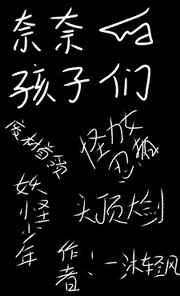 奈奈
孩子们
废材首领
怪力女
忍狐
妖怪少年
头顶大剑
作者:一沐轻风